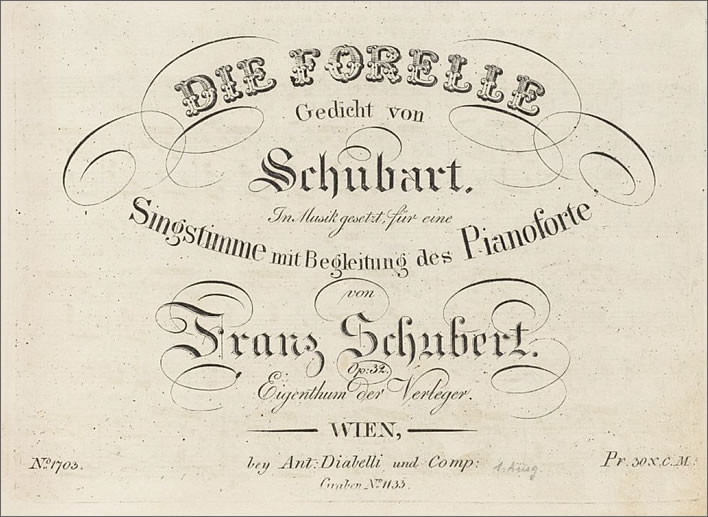 DIE FORELLE
Gedicht von
Schubart.
In Musik gesetzt, für eine
Singstimme mit Begleitung des Pianoforte
von
Franz Schubert.
Op: 32.
Eigenthum der Verleger.
WIEN,
No. 1703. bey Ant: Diabelli und Comp: 1. Ausg. Pr. 30 x. C.M.
Graben No. 1133.